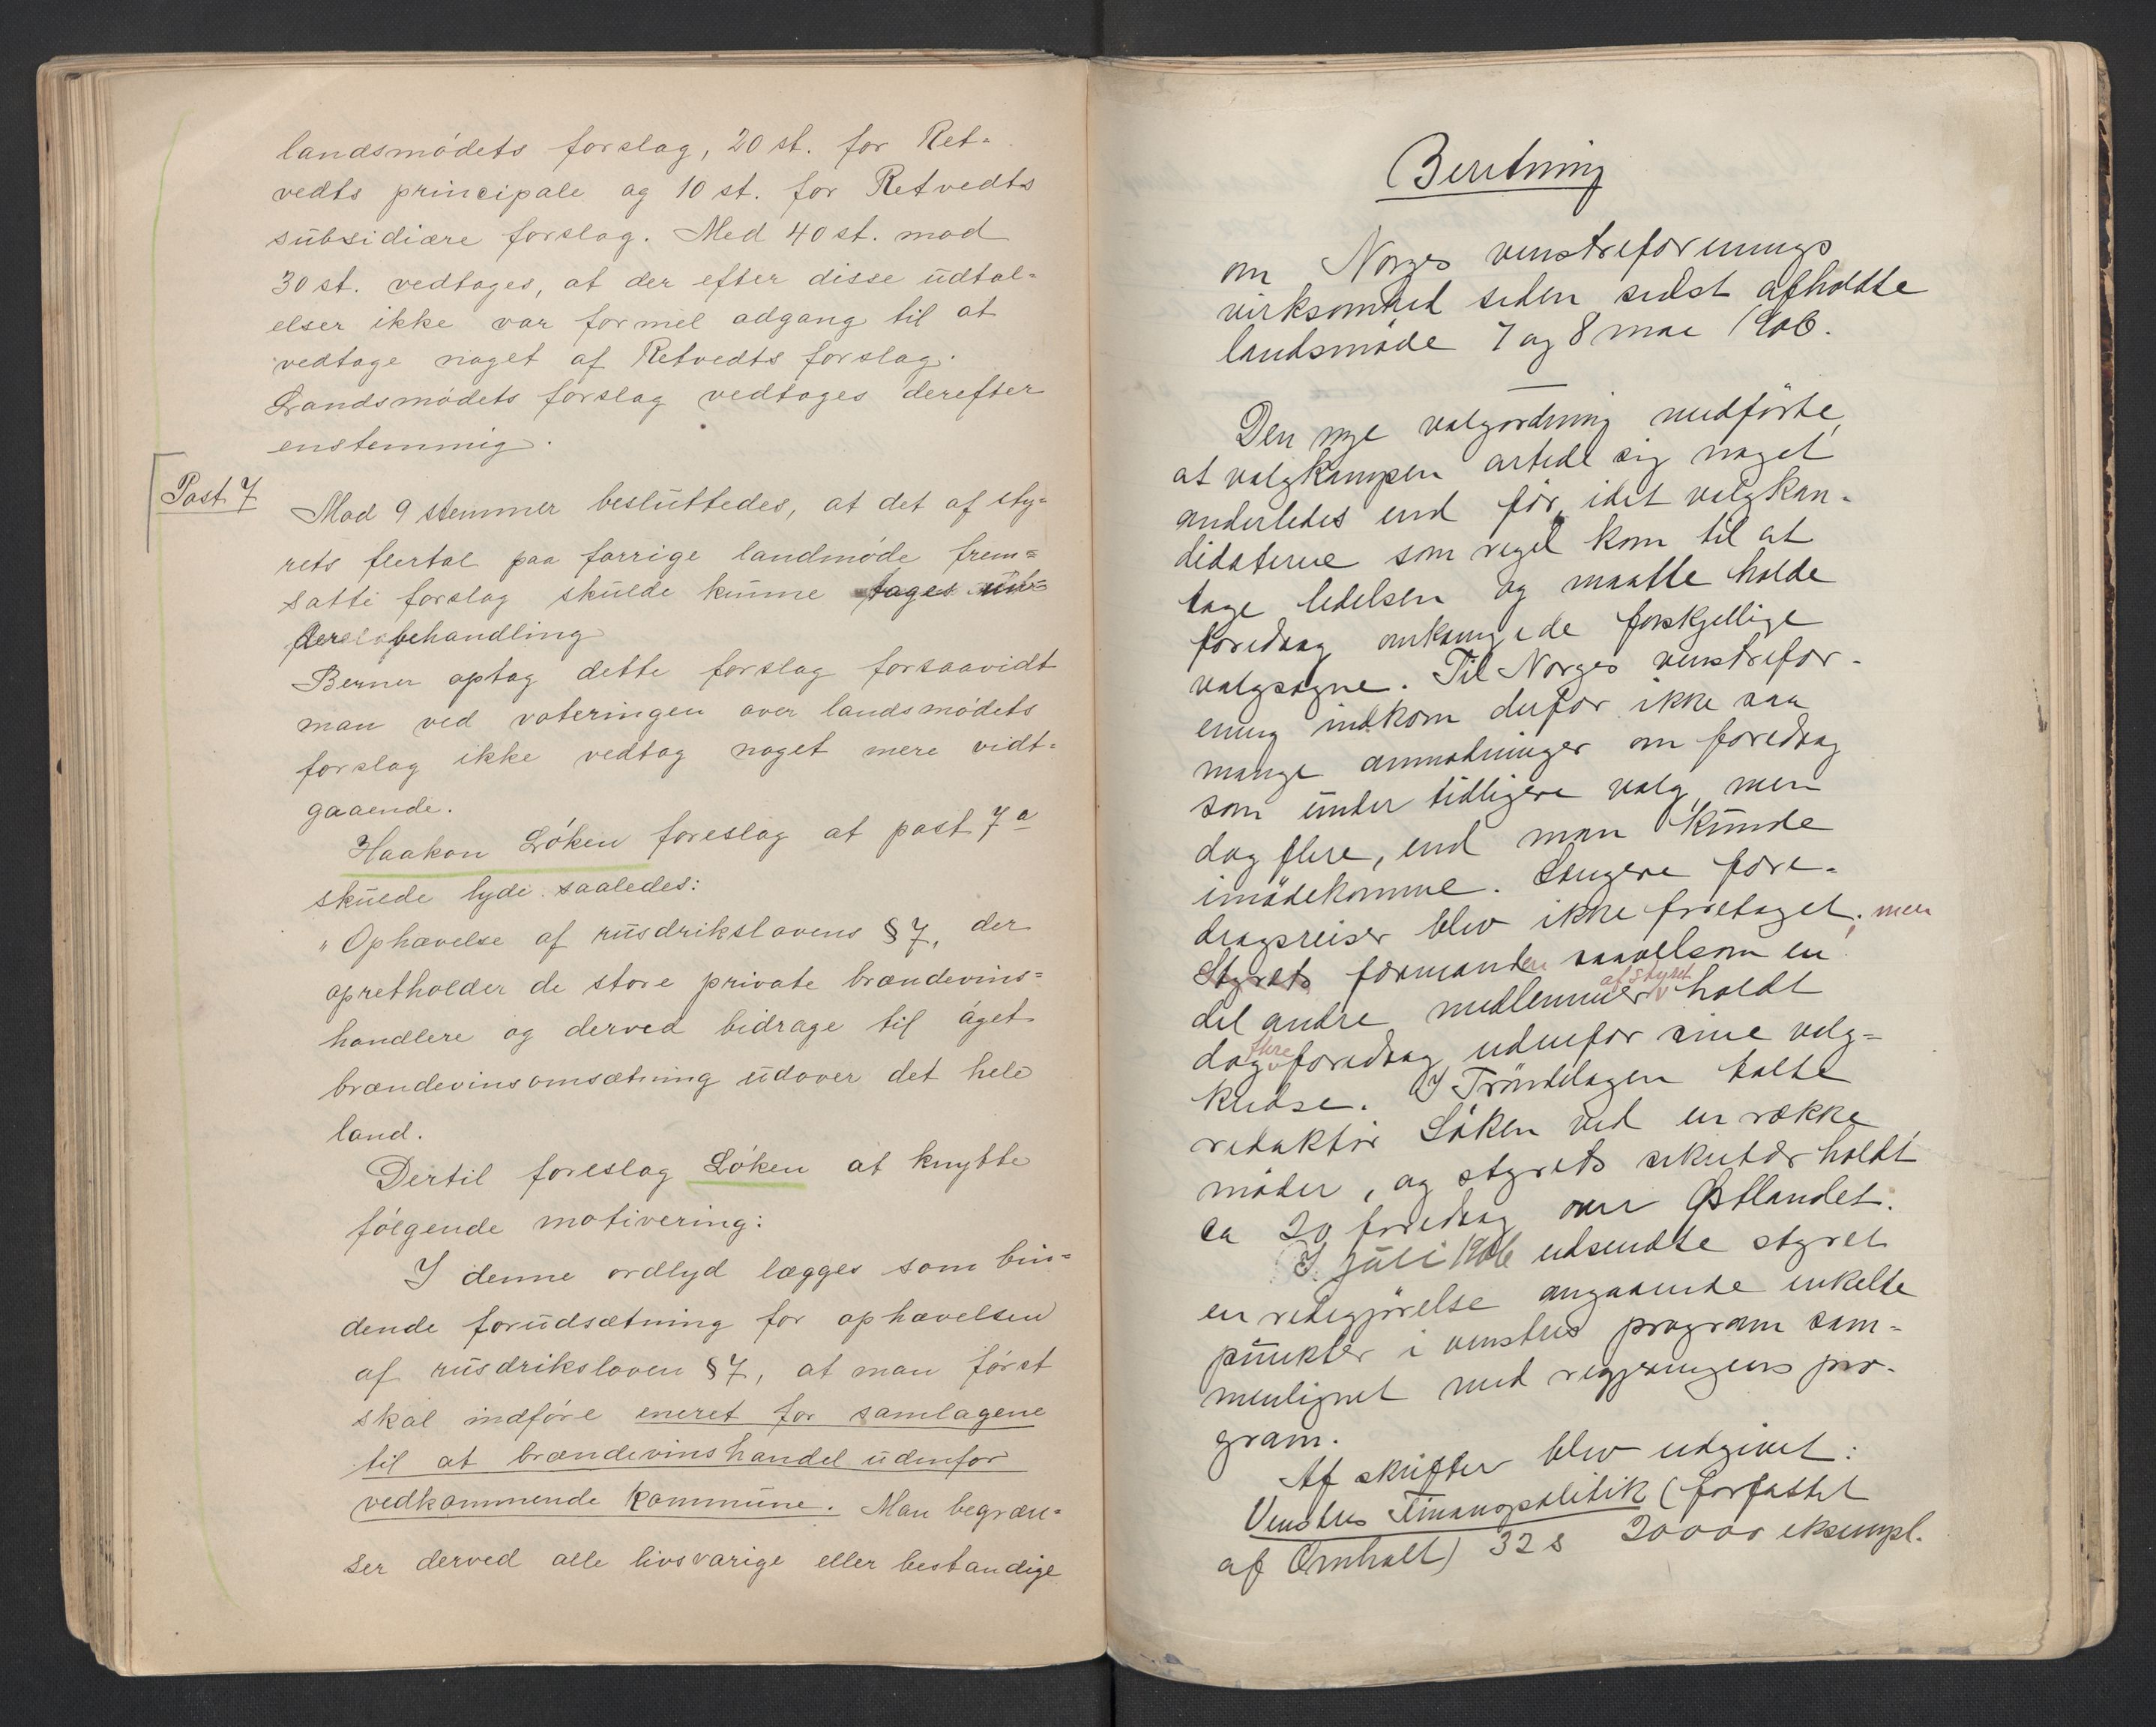 landsmödets forslag, 20 st. for Ret=
vedts principale og 10 st. for Retvedts
subsidiære forslag. Med 40 st. mod
30 st. vedtoges, at der efter disse udtal=
elser ikke var formel adgang til at
vedtage noget af Retvedts forslag.
Landsmödets forslag vedtoges derefter
enstemmig.
Post 7
Mod 9 stemmer besluttedes, at det af sty=
rets flertal paa forrige landmöde frem=
satte forslag skulde kunne tages un=
der behandling
Berner optog dette forslag forsaavidt
man ved voteringen over landsmödets
forslag ikke vedtog noget mere vidt=
gaaende.
Haakon Löken foreslog at post 7 a
skulde lyde saaledes:
"Ophævelse af rusdrikslovens § 7, der
opretholder de store private brændevins=
handlere og derved bidrage til öget
brændevinsomsætning udover det hele
land.
Dertil foreslog Löken at knytte
fölgende motivering:
I denne ordlyd lægges som bin=
dende forudsætning for ophævelsen
af rusdriksloven § 7, at man först
skal indföre eneret for samlagene
til at brændevinshandel udenfor
vedkommende kommune. Man begræn=
ser derved alle livsvarige eller bestandige
Beretning
om Norges venstreforenings
virksomhed siden sidst afholdte
landsmöde 7 og 8 mai 1906.
Den nye valgordning medförte,
at valgkampen artede sig noget
anderledes end för, idet valgkan-
didaterne som regel kom til at
tage ledelsen og maatte holde
foredrag omkring i de forskjellige
valgsogne. Til Norges venstrefor-
ening indkom derfor ikke saa
mange anmodninger om foredrag
som under tidligere valg, men
dog flere, end man kunde
imödekomme. Længere fore-
dragsreiser blev ikke foretaget; men
Styrets formanden saavelsom en
del andre medlemmer af styret holdt
dog flere foredrag udenfor sine valg=
kredse. I Tröndelagen talte
redaktör Löken ved en række
möder, og styrets sekretær holdt
ca 20 foredrag over Østlandet.
I juli 1906 udsendte styret
en redegjörelse angaaende enkelte
punkter i venstres program sam-
menlignet med regjeringens pro-
gram.
Af skrifter blev udgivet:
Venstres Finanspolitik (forfattet
af Omholt) 32 s 20000 eksempl.